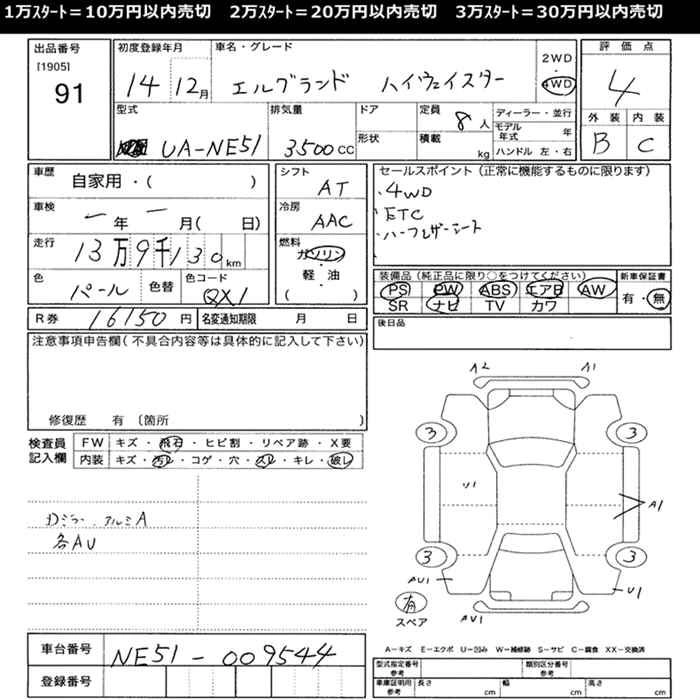 1万スタート＝10万円以内売切　2万スタート＝20万円以内売切　3万スタート＝30万円以内売切
出品番号
[1905]
91
初度登録年月
14 12月
車名・グレード
エルグランド ハイウェイスター
2WD
4WD
評価点
4
外装 内装
B C
型式
UA-NE51
排気量
3500CC
ドア
形状
定員
8人
積載
kg
ディーラー・並行
モデル年式 年
ハンドル 左・右
車歴
自家用・( )
車検
ー年 ー月( 日)
走行
13万9千130km
色
パール
色替
色コード
QX1
シフト
AT
冷房
AAC
燃料
ガソリン
・
軽・油
( )
セールスポイント（正常に機能するものに限ります）
・4WD
・ETC
・ハーフレザーシート
装備品（純正品に限り○をつけてください）
PS PW ABS エアB AW
SR ナビ TV カワ
新車保証書
有・無
R券 16150円
名変通知期限 月 日
後日品
注意事項申告欄(不具合内容等は具体的に記入して下さい)
修復歴 有〔箇所 〕
検査員記入欄
FW キズ・飛石・ヒビ割・リペア跡・X要
内装 キズ・汚レ・コゲ・穴・スレ・キレ・破レ
カミラー、アルミA
各AU
A2 A1
3 3
U1
A1
3 3
AU1
U1
有
スペア
AU1
A－キズ E－エクボ U－凹み W－補修跡 S－サビ C－腐食 XX－交換済
車台番号
NE51-009544
登録番号
型式指定番号
参考
類別区分番号
参考
車庫証明用
参考
長さ cm 幅 cm 高さ cm